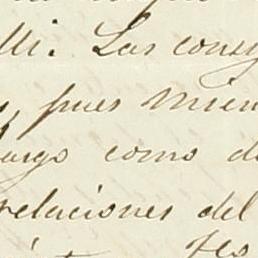 lli. Las conse
pues mien
argo como d
relaciones del